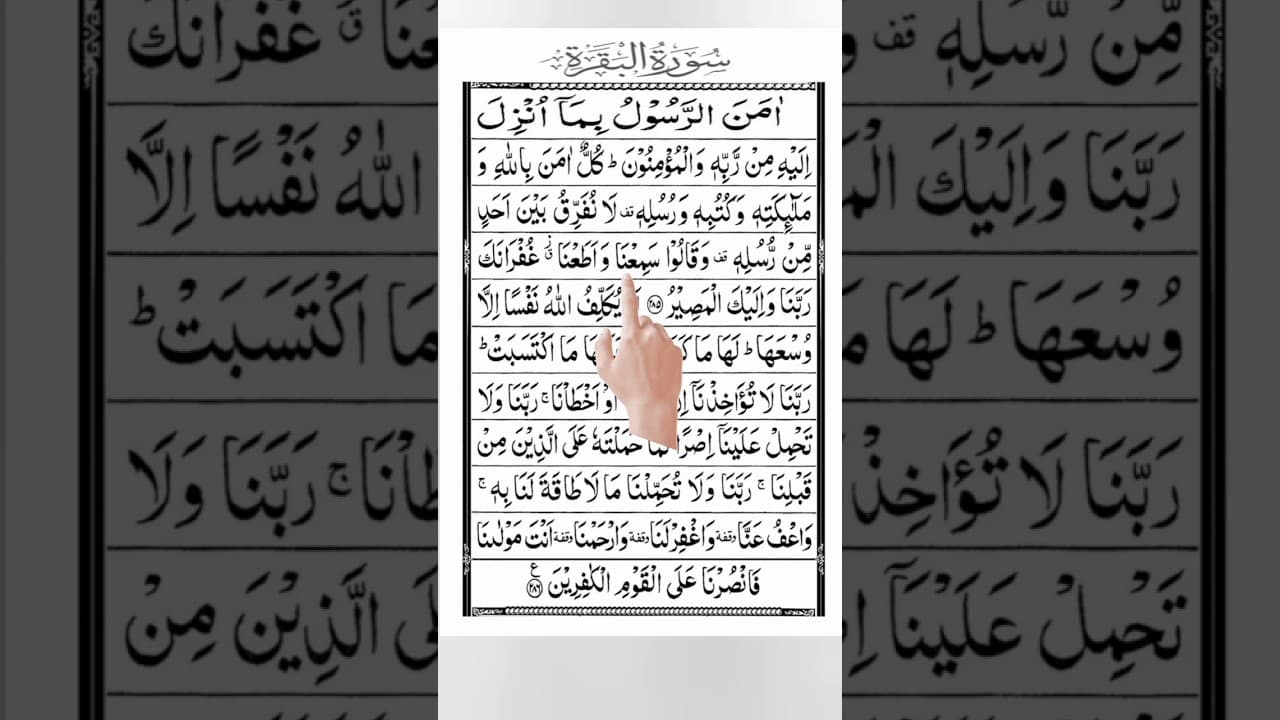 سُوْرَةُ الْبَقَرَةِ
اٰمَنَ الرَّسُوْلُ بِمَاۤ اُنْزِلَ
اِلَيْهِ مِنْ رَّبِّهٖ وَالْمُؤْمِنُوْنَ ؕ كُلٌّ اٰمَنَ بِاللّٰهِ وَ
مَلٰٓئِكَتِهٖ وَكُتُبِهٖ وَرُسُلِهٖ قف لَا نُفَرِّقُ بَيْنَ اَحَدٍ
مِّنْ رُّسُلِهٖ قف وَقَالُوْا سَمِعْنَا وَاَطَعْنَا ۫ق غُفْرَانَكَ
رَبَّنَا وَاِلَيْكَ الْمَصِيْرُ ﴿۲۸۵﴾ يُكَلِّفُ اللّٰهُ نَفْسًا اِلَّا
وُسْعَهَا ؕ لَهَا مَا مَا اكْتَسَبَتْ ؕ
رَبَّنَا لَا تُؤَاخِذْنَاۤ اَوْ اَخْطَاْنَا ۚ رَبَّنَا وَلَا
تَحْمِلْ عَلَيْنَاۤ اِصْرًا حَمَلْتَهٗ عَلَى الَّذِيْنَ مِنْ
قَبْلِنَا ۚ رَبَّنَا وَلَا تُحَمِّلْنَا مَا لَا طَاقَةَ لَنَا بِهٖ ۚ
وَاعْفُ عَنَّا وقفة وَاغْفِرْ لَنَا وقفة وَارْحَمْنَا وقفة اَنْتَ مَوْلٰىنَا
فَانْصُرْنَا عَلَى الْقَوْمِ الْكٰفِرِيْنَ ﴿۲۸۶﴾ ع